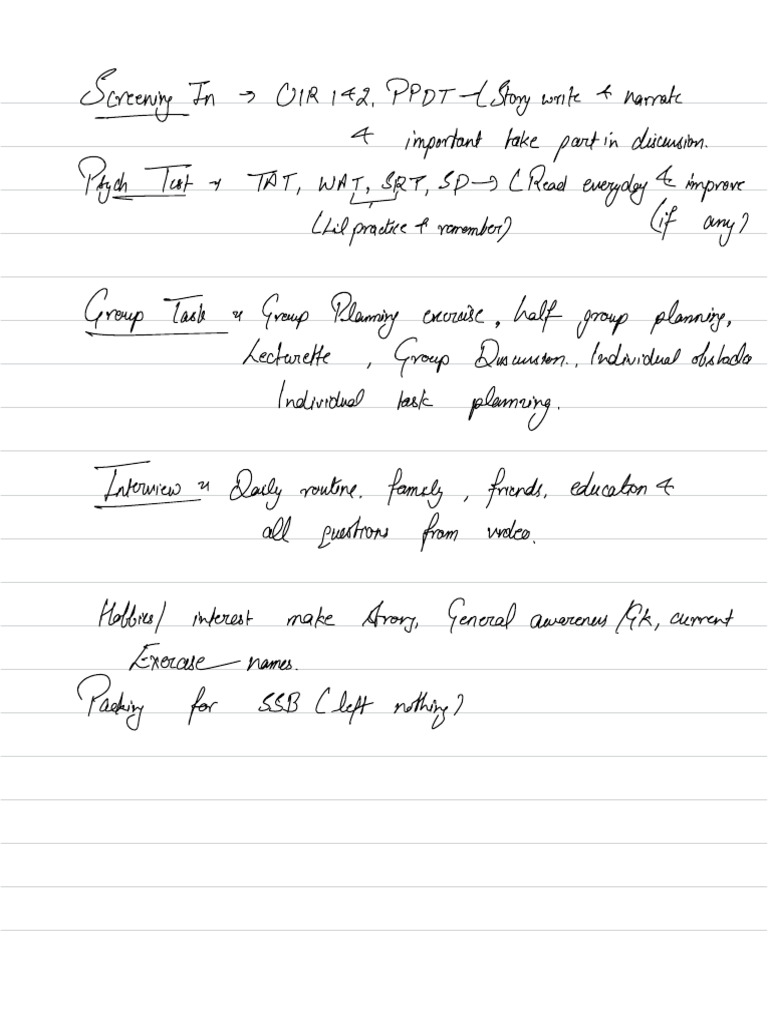 Screening In → OIR 1&2, PPDT → (Story write & narrate
& important take part in discussion.
Psych Test → TAT, WAT, SRT, SD → (Read everyday & improve
(Lil practice & remember) (if any)
Group Task → Group Planning exercise, half group planning,
Lecturette, Group Discussion, Individual obstacle
Individual task planning.
Interview → Daily routine. family, friends, education &
all questions from video.
Hobbies/ interest make strong, General awareness/Gk, current
Exercise names.
Packing for SSB (left nothing)